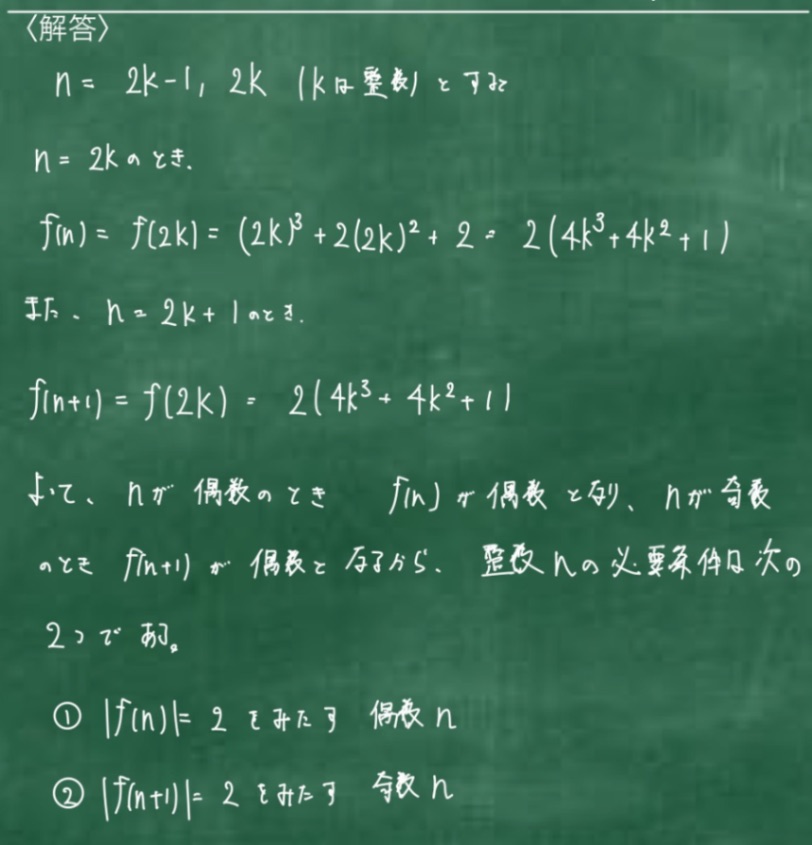 〈解答〉
n = 2k-1, 2k (kは整数)とすると
n = 2kのとき.
f(n) = f(2k) = (2k)³ + 2(2k)² + 2 = 2(4k³+4k²+1)
また、n = 2k+1のとき.
f(n+1) = f(2k) = 2(4k³+4k²+1)
よって、nが偶数のとき f(n)が偶数となり、nが奇数
のとき f(n+1)が偶数となるから、整数nの必要条件は次の
2つである。
① |f(n)|= 2をみたす 偶数n
② |f(n+1)|= 2をみたす 奇数n